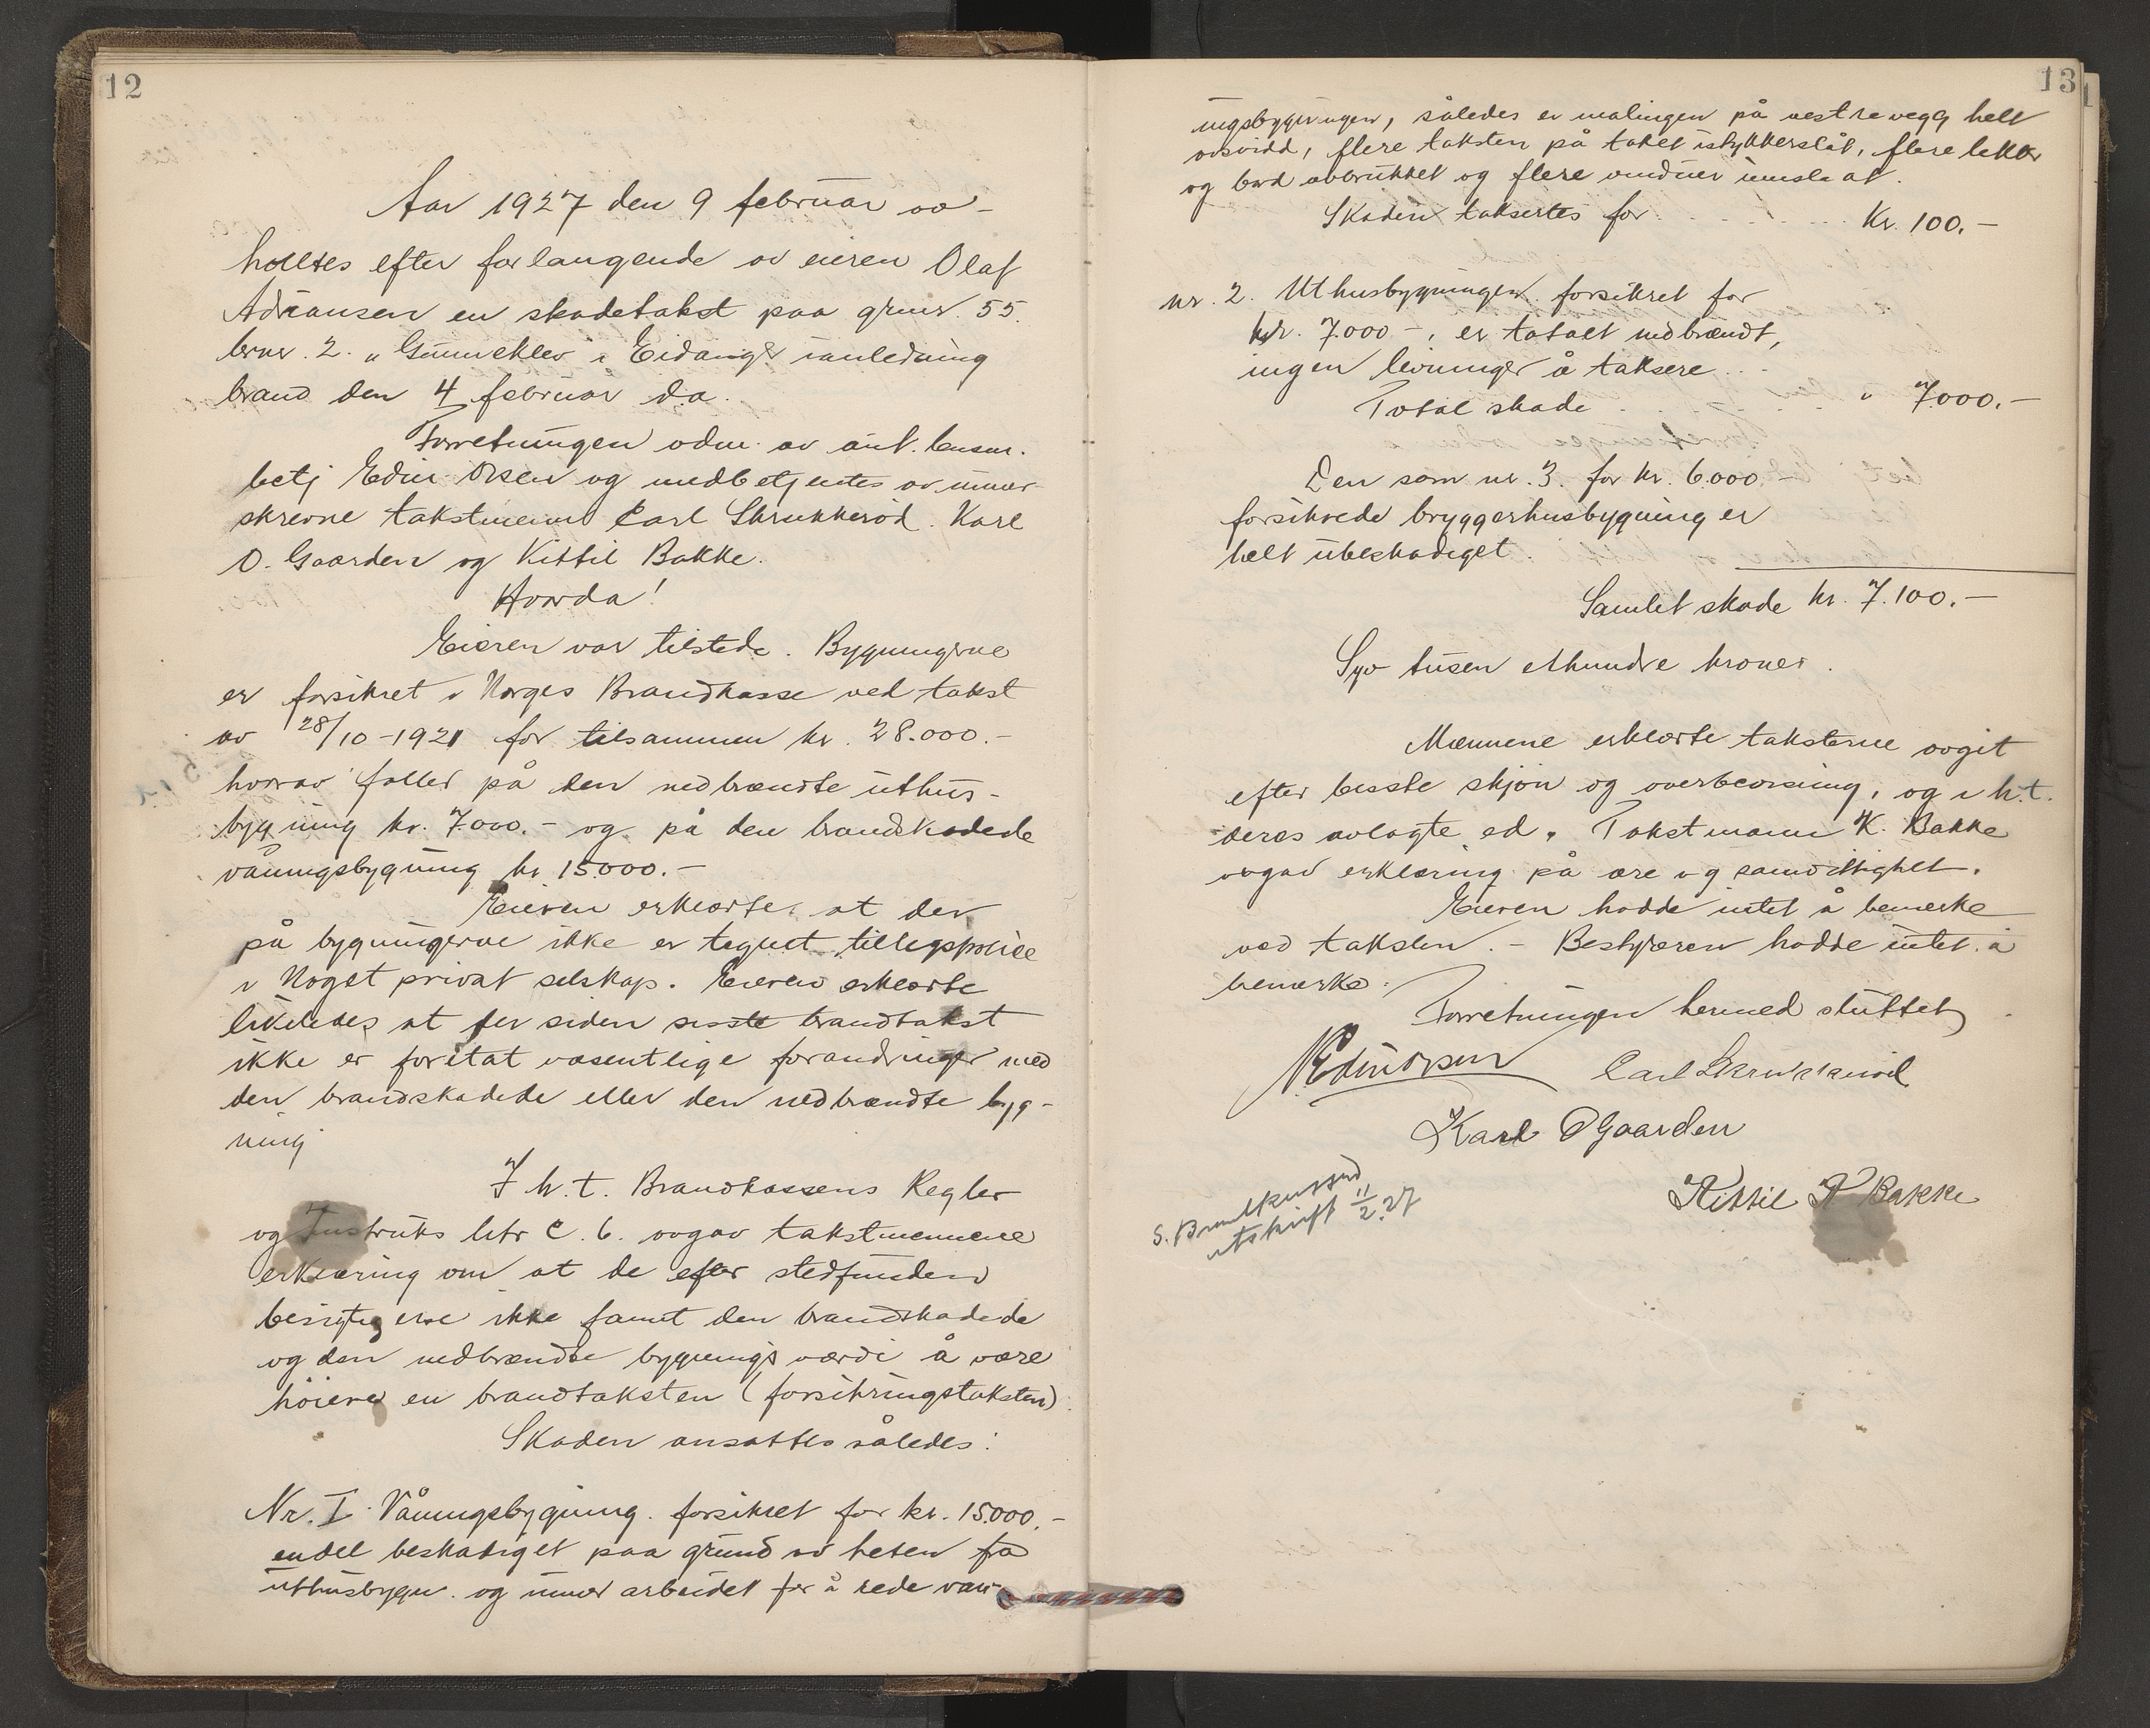 12
Aar 1927 den 9 februar av-
holtes efter forlangende av eieren Olaf
Adriansen en skadetakst paa grnr. 55.
brnr. 2. "Gunneklev" i Eidanger i anledning
brand den 4 februar d.a.
Forretningen adm. av ant. lensm.
betj Edin Olsen og medbetjentes av under-
skrevne takstmenn Carl Skrukkerød. Karl
O. Gaarden og Kittil Bakke.
Hvorda!
Eieren var tilstede. Bygningerne
er forsikret i Norges Brandkasse ved takst
av 28/10-1921 for tilsammen kr. 28.000.-
hvorav faller på den nedbrændte uthus-
bygning kr. 7.000.- og på den brandskadede
våningsbygning kr 15.000.-
Eieren erklærte, at der
på bygningerne ikke er tegnet tillegspolice
i Noget privat selskap. Eieren erklærte
likeledes at der siden sisste brandtakst
ikke er foretat væsentlige forandringer med
den brandskadede eller den nedbrændte byg-
ning
I h.t. Brandkassens Regler
og Instruks litr C. 6. avgav takstmennene
erklæring om at de efter stedfunden
besigtigelse ikke fannt den brandskadede
og den nedbrændte bygnings værdi å være
höiere en brandtaksten (forsikringstaksten).
Skaden ansattes således:
Nr. I Våningsbygning. forsikret for kr. 15.000.-
endel beskadiget paa grund av heten fra
uthusbygn. og under arbeidet for å rede vån-
13
ingsbygningen, således er malingen på vestre vegg helt
avsvidd, flere taksten på taket istykkerslåt, flere lekter
og bord avbrukket og flere vinduer innslaat.
Skaden taksertes for . . . . Kr. 100.-
nr. 2. Uthusbygningen. forsikret for
kr. 7.000 -, er totalt nedbrændt,
ingen levninger å taksere . .
Total skade . . . . " 7.000.-
Den som nr. 3. for kr. 6.000.-
forsikrede bryggerhusbygning er
helt ubeskadiget.
Samlet skade kr. 7.100.-
Syv tusen ethundre kroner.
Mænnene erklærte taksterne avgit
efter besste skjön og overbevisning, og i h.t.
deres avlagte ed. Takstmann K. Bakke
avgav erklæring på ære og samvittighet.
Eieren hadde intet å bemerke
ved taksten. - Bestyreren hadde intet å
bemerke.
Forretningen hermed sluttet.
N Edin Olsen Carl Skrukkerød
Karl O Gaarden
Kittil N Bakke
S. Brandkassen
utskrift 11/2.27